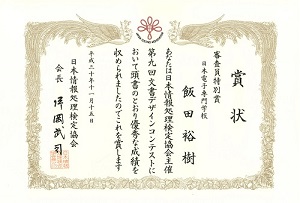 賞状
審査員特別賞
日本電子専門学校
飯田裕樹
あなたは日本情報処理検定協会主催
第九回文書デザインコンテストに
おいて頭書のとおり優秀な成績を
収められましたのでこれを賞します
平成二十年十一月十五日
日本情報処理検定協会
会長